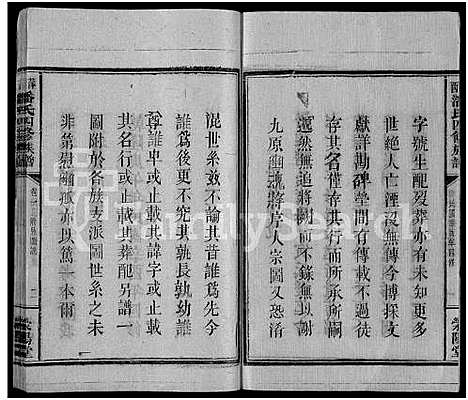 潘氏四修族譜
滎陽堂
字號生配歿葬亦有未知更多
世絕人亡湮沒無傳今博採文
獻詳勘碑塋間有傳載不過徒
存其名僅存其行而所承所嗣
邈然無追將削而不錄無以謝
九原幽魂將弁大宗圖又恐淆
混世系茲不論其昔誰爲先今
誰爲後更不究其孰長孰幼誰
尊誰卑或止載其諱字或止載
其名行或止載其葬配另譜一
圖附於各族支派圖世系之未
非第慰離亦以篤一本爾
潘氏四修族譜
卷一
二
滎陽堂
FamilySearch